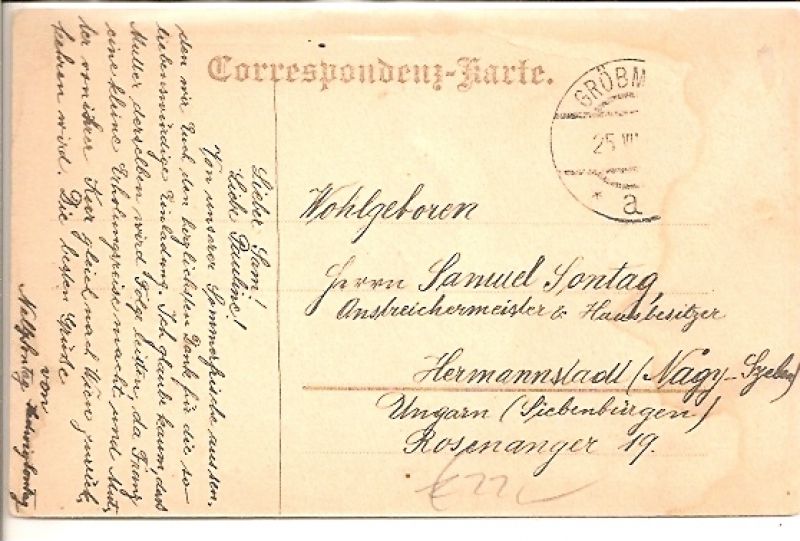 Correspondenz-Karte.
GRÖBM
25 VII
* a
Wohlgeboren
Herrn Samuel Sontag,
Anstreichermeister & Hausbesitzer
Hermannstadt (Nagy-Szeben)
Ungarn (Siebenbürgen)
Rosenanger 19.
Lieber Sam!
Liebe Pauline!
Von unserer Sommerfrische aus sen-
den wir Euch den herzlichsten Dank für die so
liebenswürdige Einladung. Ich glaube kaum dass
Mutter derselben wird Folge leisten, da Franz
eine kleine Erholungsreise macht und Mut-
ter von ihrer Kur gleich nach Wien zurück
kehren wird. Die besten Grüße
von
Sontag Hedwig Sontag